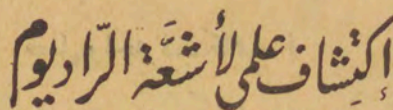 إكتِشاف علمى لأشعَّة الرّاديوم